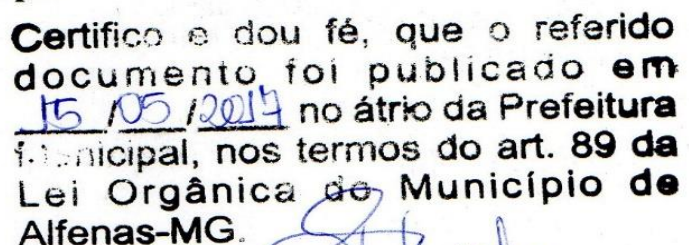 Certifico e dou fé, que o referido
documento foi publicado em
15/05/2017 no átrio da Prefeitura
Municipal, nos termos do art. 89 da
Lei Orgânica do Município de
Alfenas-MG.